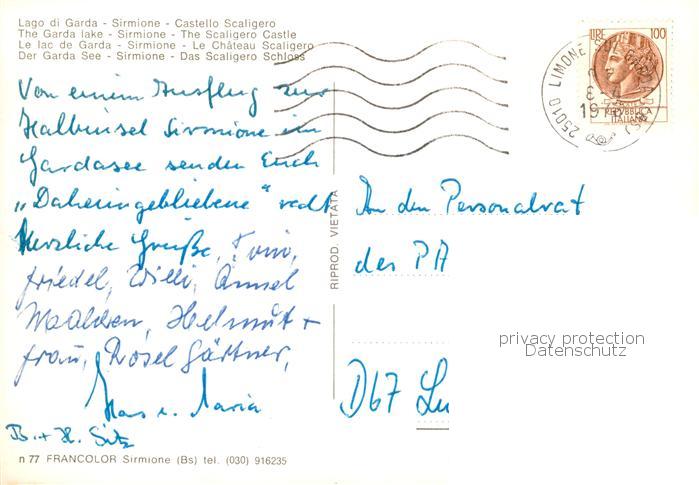 Lago di Garda - Sirmione - Castello Scaligero
The Garda lake - Sirmione - The Scaligero Castle
Le lac de Garda - Sirmione - Le Château Scaligero
Der Garda See - Sirmione - Das Scaligero Schloss
LIRE 100
REPUBBLICA
ITALIANA
25010 LIMONE SUL GARDA (BS)
Von einem Ausflug zur
Halbinsel Sirmione im
Gardasee senden Euch
„Daheimgebliebene" recht
Herzliche Grüße, Toni,
Friedel, Willi,
Helmut +
Frau, Rosel Gärtner,
Hans u. Maria
B. + H. Sitz
RIPROD. VIETATA
An den Personalrat
des PA
D67 Lu
privacy protection
Datenschutz
n 77 FRANCOLOR Sirmione (Bs) tel. (030) 916235